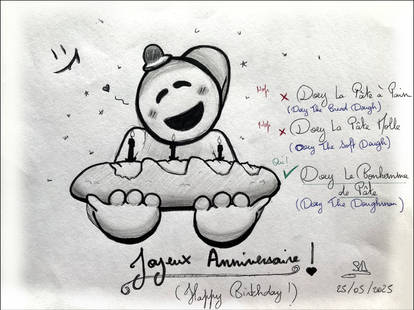 Nop × Doey La Pâte à Pain
(Doey The Bread Dough)
Nop × Doey La Pâte Molle
(Doey The Soft Dough)
Oui! ✓ Doey Le Bonhomme
de Pâte
(Doey The Doughman)
Joyeux Anniversaire !
(Happy Birthday !)
25/05/2025